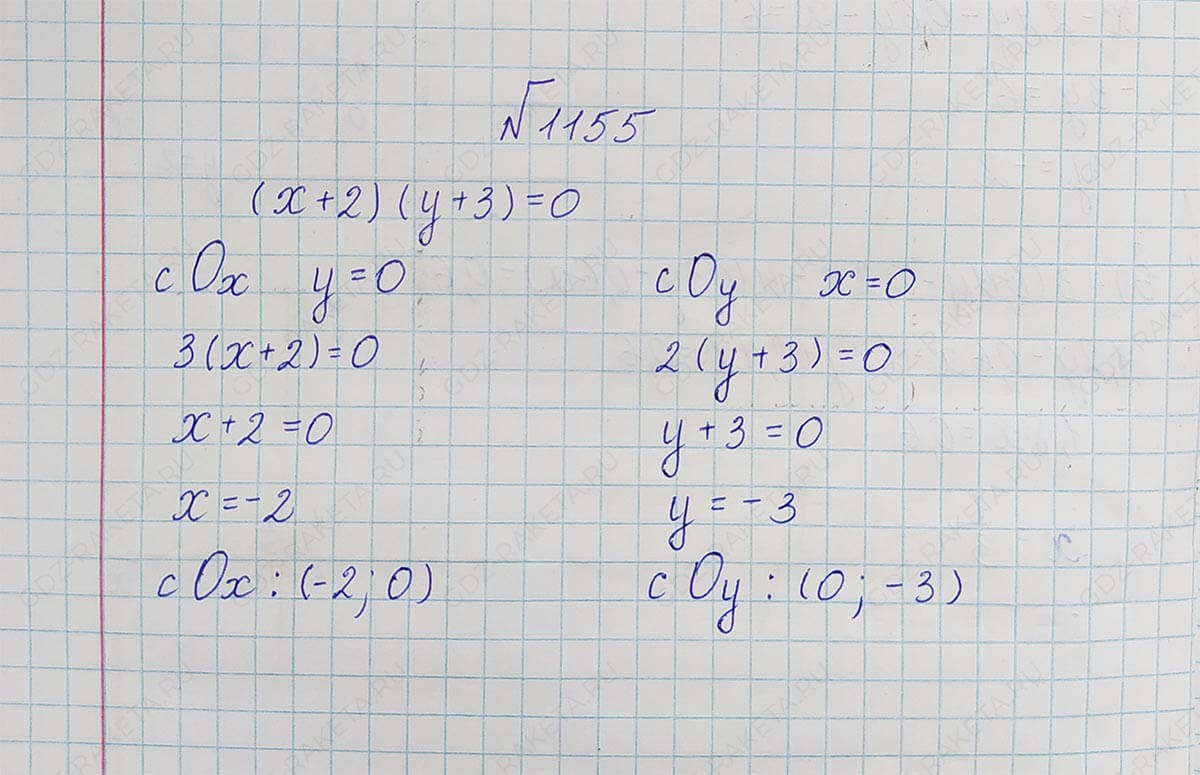 №1155
(x+2)(y+3)=0
с Ox y=0
3(x+2)=0
x+2=0
x=-2
с Ox: (-2; 0)
с Oy x=0
2(y+3)=0
y+3=0
y=-3
с Oy: (0; -3)
GDZ-RAKETA.RU